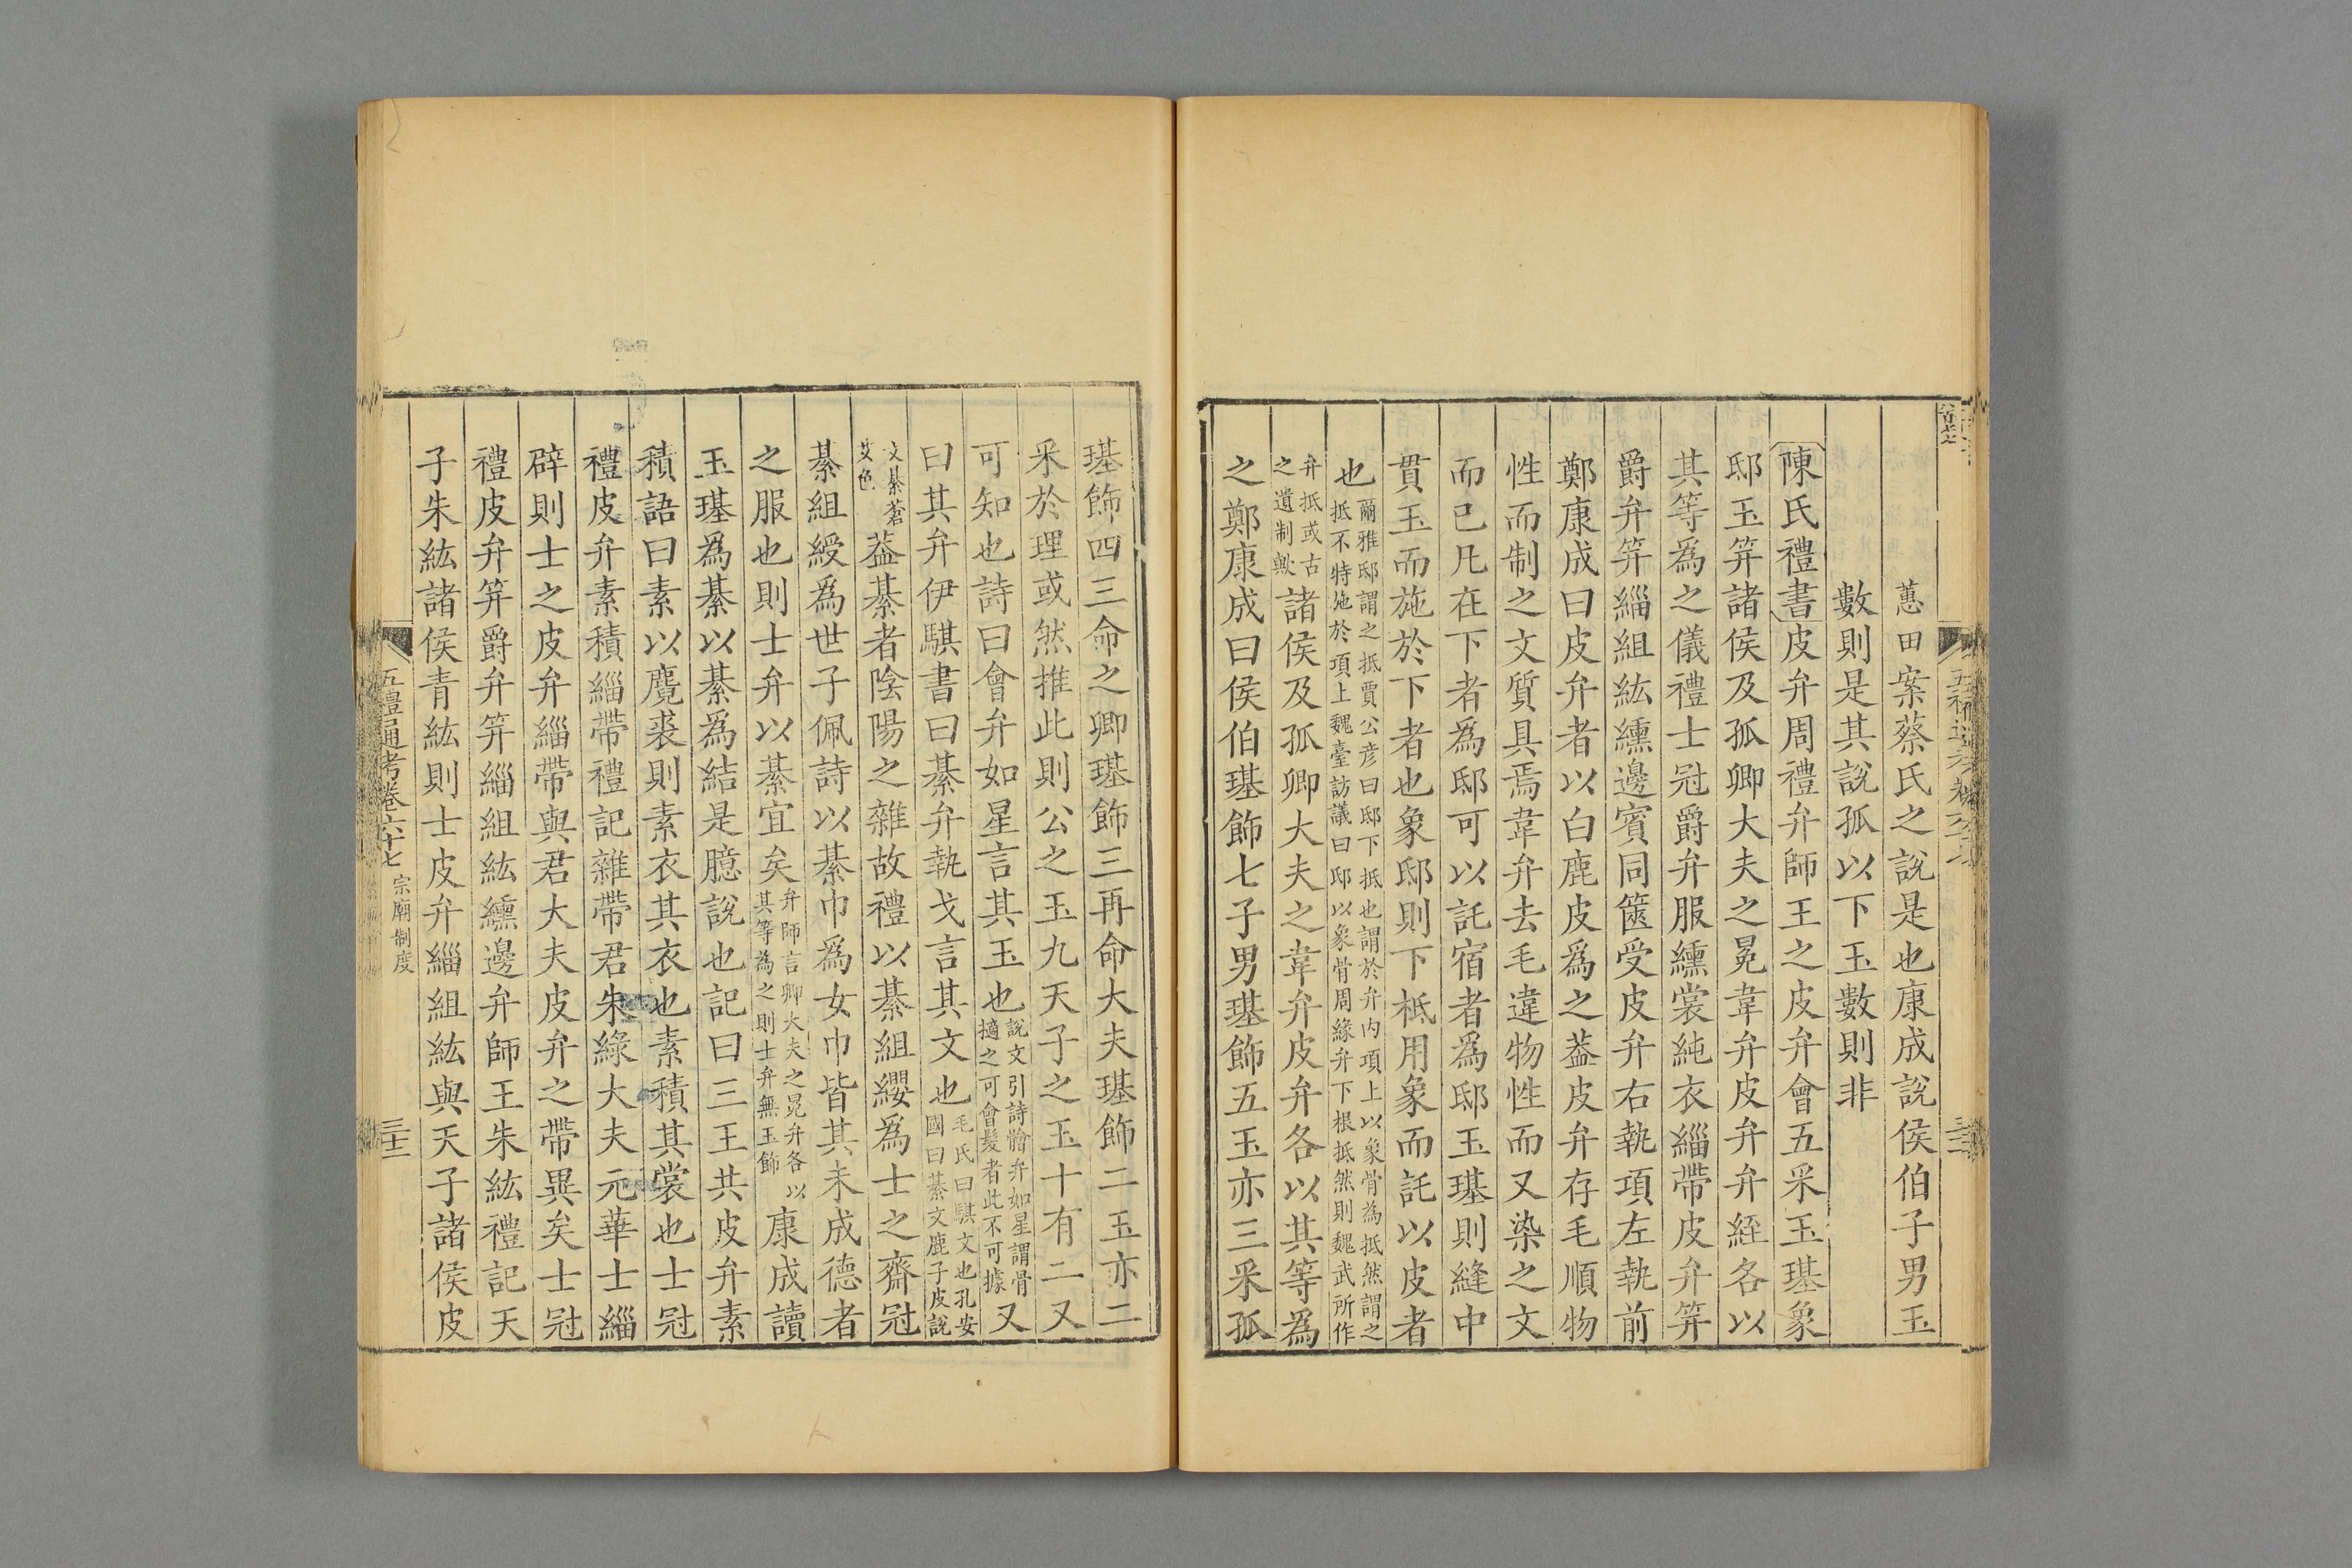 蕙田案蔡氏之說是也康成說侯伯子男玉
數則是其說孤以下玉數則非
陳氏禮書皮弁周禮弁師王之皮弁會五采玉璂象
邸玉笄諸侯及孤卿大夫之冕韋弁皮弁弁絰各以
其等爲之儀禮士冠爵弁服纁裳純衣緇帶皮弁笄
爵弁笄緇組紘纁邊賓同篋受皮弁右執項左執前
鄭康成曰皮弁者以白鹿皮爲之葢皮弁存毛順物
性而制之文質具焉韋弁去毛違物性而又染之文
而已凡在下者爲邸可以託宿者爲邸玉璂則縫中
貫玉而施於下者也象邸則下柢用象而託以皮者
也
爾雅邸謂之抵賈公彦曰邸下抵也謂於弁内項上以象骨為抵然謂之
抵不特施於項上魏臺訪議曰邸以象骨周緣弁下根抵然則魏武所作
弁抵或古
之遺制歟
諸侯及孤卿大夫之韋弁皮弁各以其等爲
之鄭康成曰侯伯璂飾七子男璂飾五玉亦三采孤
璂飾四三命之卿璂飾三再命大夫璂飾二玉亦二
采於理或然推此則公之玉九天子之玉十有二又
可知也詩曰會弁如星言其玉也
說文引詩䯤弁如星謂骨
擿之可會髮者此不可據
又
曰其弁伊騏書曰綦弁執戈言其文也
毛氏曰騏文也孔安
國曰綦文鹿子皮說
文綦蒼
艾色
葢綦者陰陽之雜故禮以綦組纓爲士之齊冠
綦組綬爲世子佩詩以綦巾爲女巾皆其未成德者
之服也則士弁以綦宜矣
弁師言卿大夫之冕弁各以
其等為之則士弁無玉飾
康成讀
玉璂爲綦以綦爲結是臆說也記曰三王共皮弁素
積語曰素以麑裘則素衣其衣也素積其裳也士冠
禮皮弁素積緇帶禮記雜帶君朱綠大夫元華士緇
辟則士之皮弁緇帶與君大夫皮弁之帶異矣士冠
禮皮弁笄爵弁笄緇組紘纁邊弁師王朱紘禮記天
子朱紘諸侯青紘則士皮弁緇組紘與天子諸侯皮
五禮通考卷六十七
宗廟制度